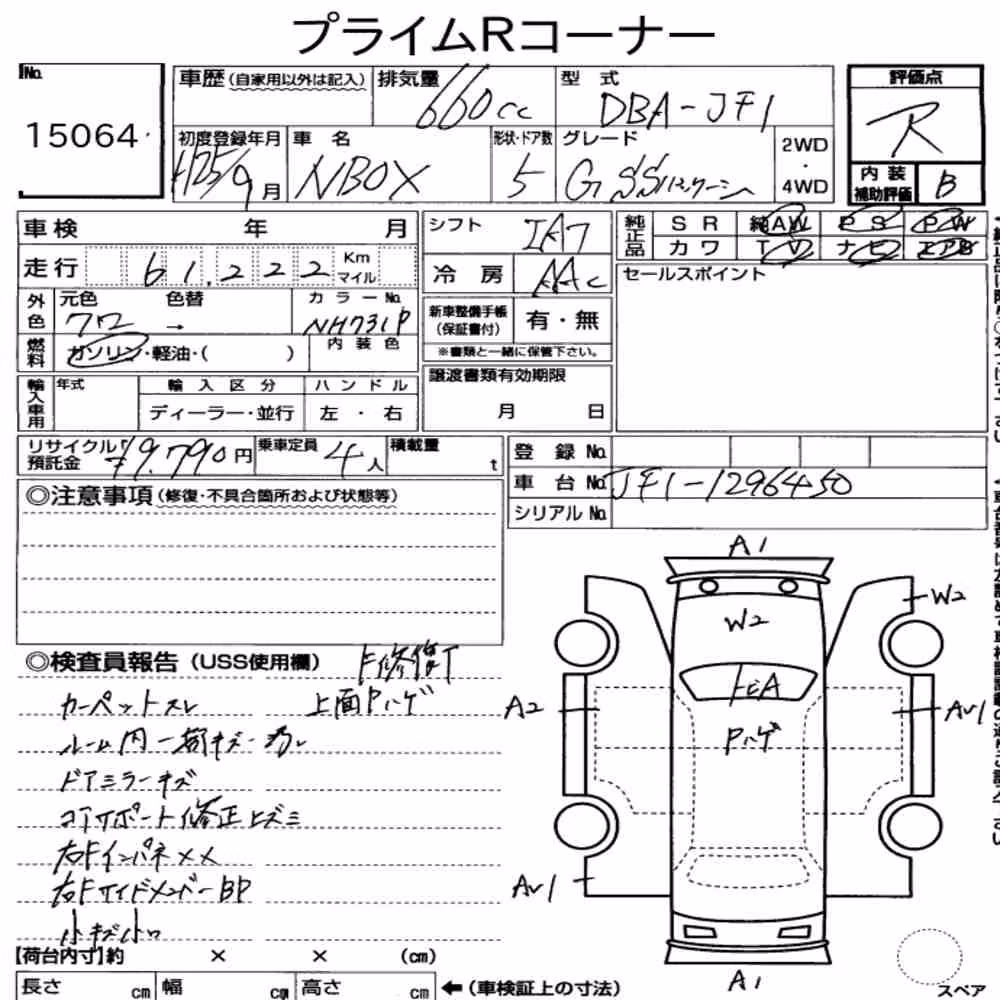 プライムRコーナー
No.
15064
車歴(自家用以外は記入) 排気量 660cc 型式 DBA-JF1
初度登録年月 H25/9月 車名 NBOX 形状・ドア数 5 グレード G SSパッケージ 2WD・4WD
評価点 R
内装補助評価 B
車検 年 月
走行 61,222 Km マイル
外色 元色 色替 → カラーNo. NH731P
燃料 ガソリン・軽油・( ) 内装色
輸入車用 年式 輸入区分 ハンドル
ディーラー・並行 左・右
シフト IA7
冷房 AAC
新車整備手帳(保証書付) 有・無
※書類と一緒に保管下さい。
譲渡書類有効期限
月 日
純正品 SR 純AW PS PW
カワ TV ナビ エアB
セールスポイント
リサイクル預託金 ¥9,790円 乗車定員 4人 積載量 t
登録No.
車台No. JF1-1296450
シリアルNo.
◎注意事項(修復・不具合箇所および状態等)
◎検査員報告(USS使用欄) F修復T
カーペットスレ 上面Pハゲ
ルーム内一部キズ・汚レ
ドアミラーキズ
コアサポート修正ヒズミ
右FインパネXX
右FサイドメンバーBP
小キズ小凹
A1
W2
W2
トビA
A2
Pハゲ
AU1
AU1
A1
スペア
【荷台内寸】約 × × (cm)
長さ cm 幅 cm 高さ cm ←(車検証上の寸法)